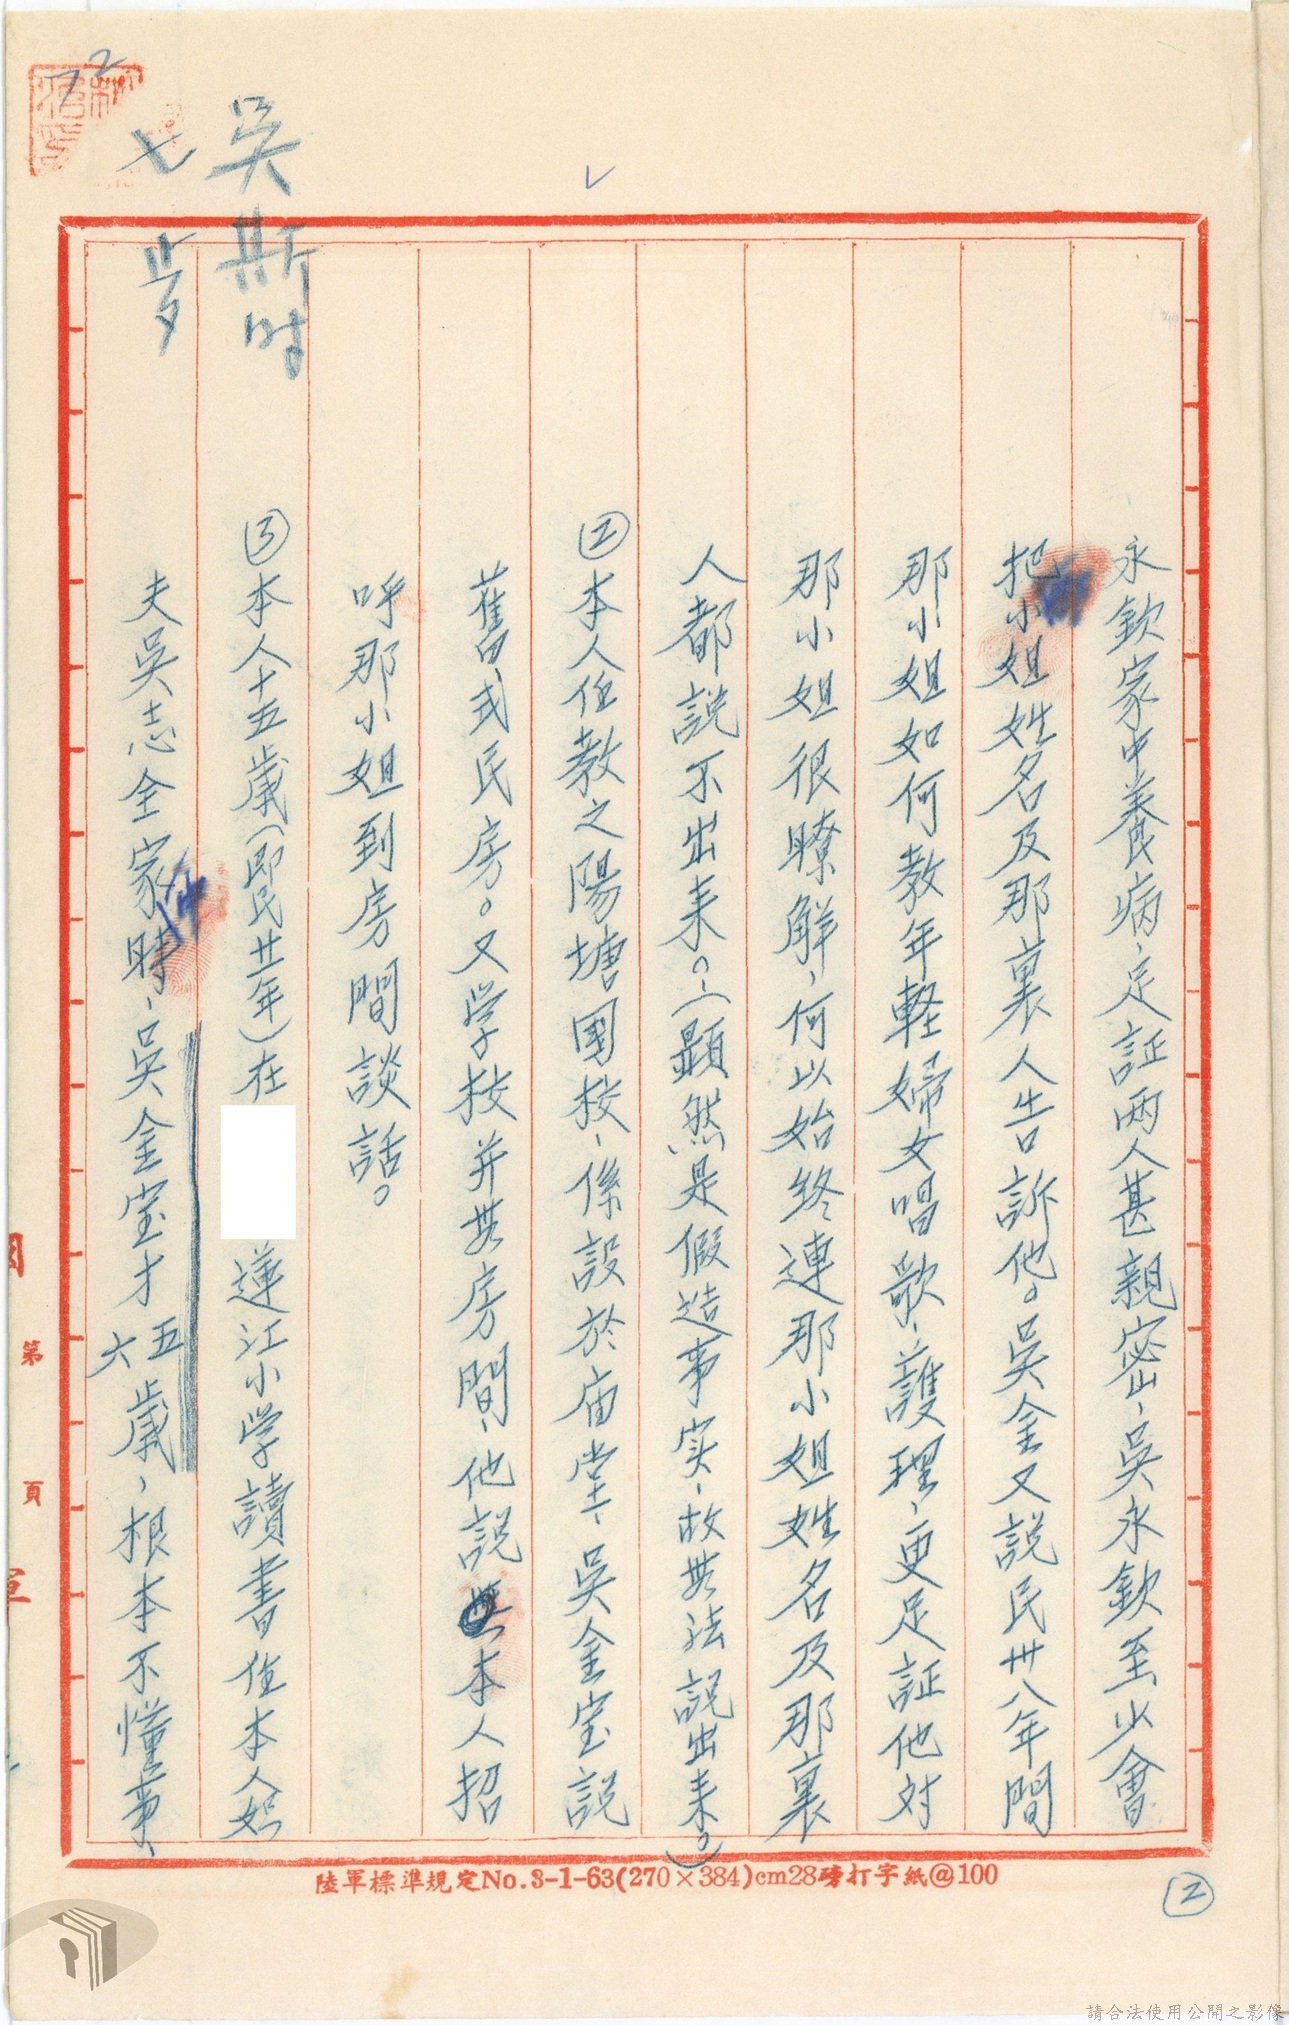 永欽家中養病，足証两人甚親密，吳永欽至少會
把小姐姓名及那裏人告訴他。吳金又説民卅八年間
那小姐如何教年軽婦女唱歌，護理，更足証他対
那小姐很瞭解，何以始终連那小姐姓名及那裏
人都説不出来。（顕然是假造事实，故無法説出来。）
②本人任教之陽塘国校，係設於庙堂，吳金宝説
舊式民房。又学校并無房間，他説本人招
呼那小姐到房間談話。
③本人十五歲（即民廿一年）在
蓮江小学讀書住本人姒
夫吳志全家時，吳金宝才五六歲，根本不懂事，
吳斯时
七歩
72
陸軍標準規定No.3-1-63(270×384)cm28磅打字紙@100
②
第
頁
請合法使用公開之影像